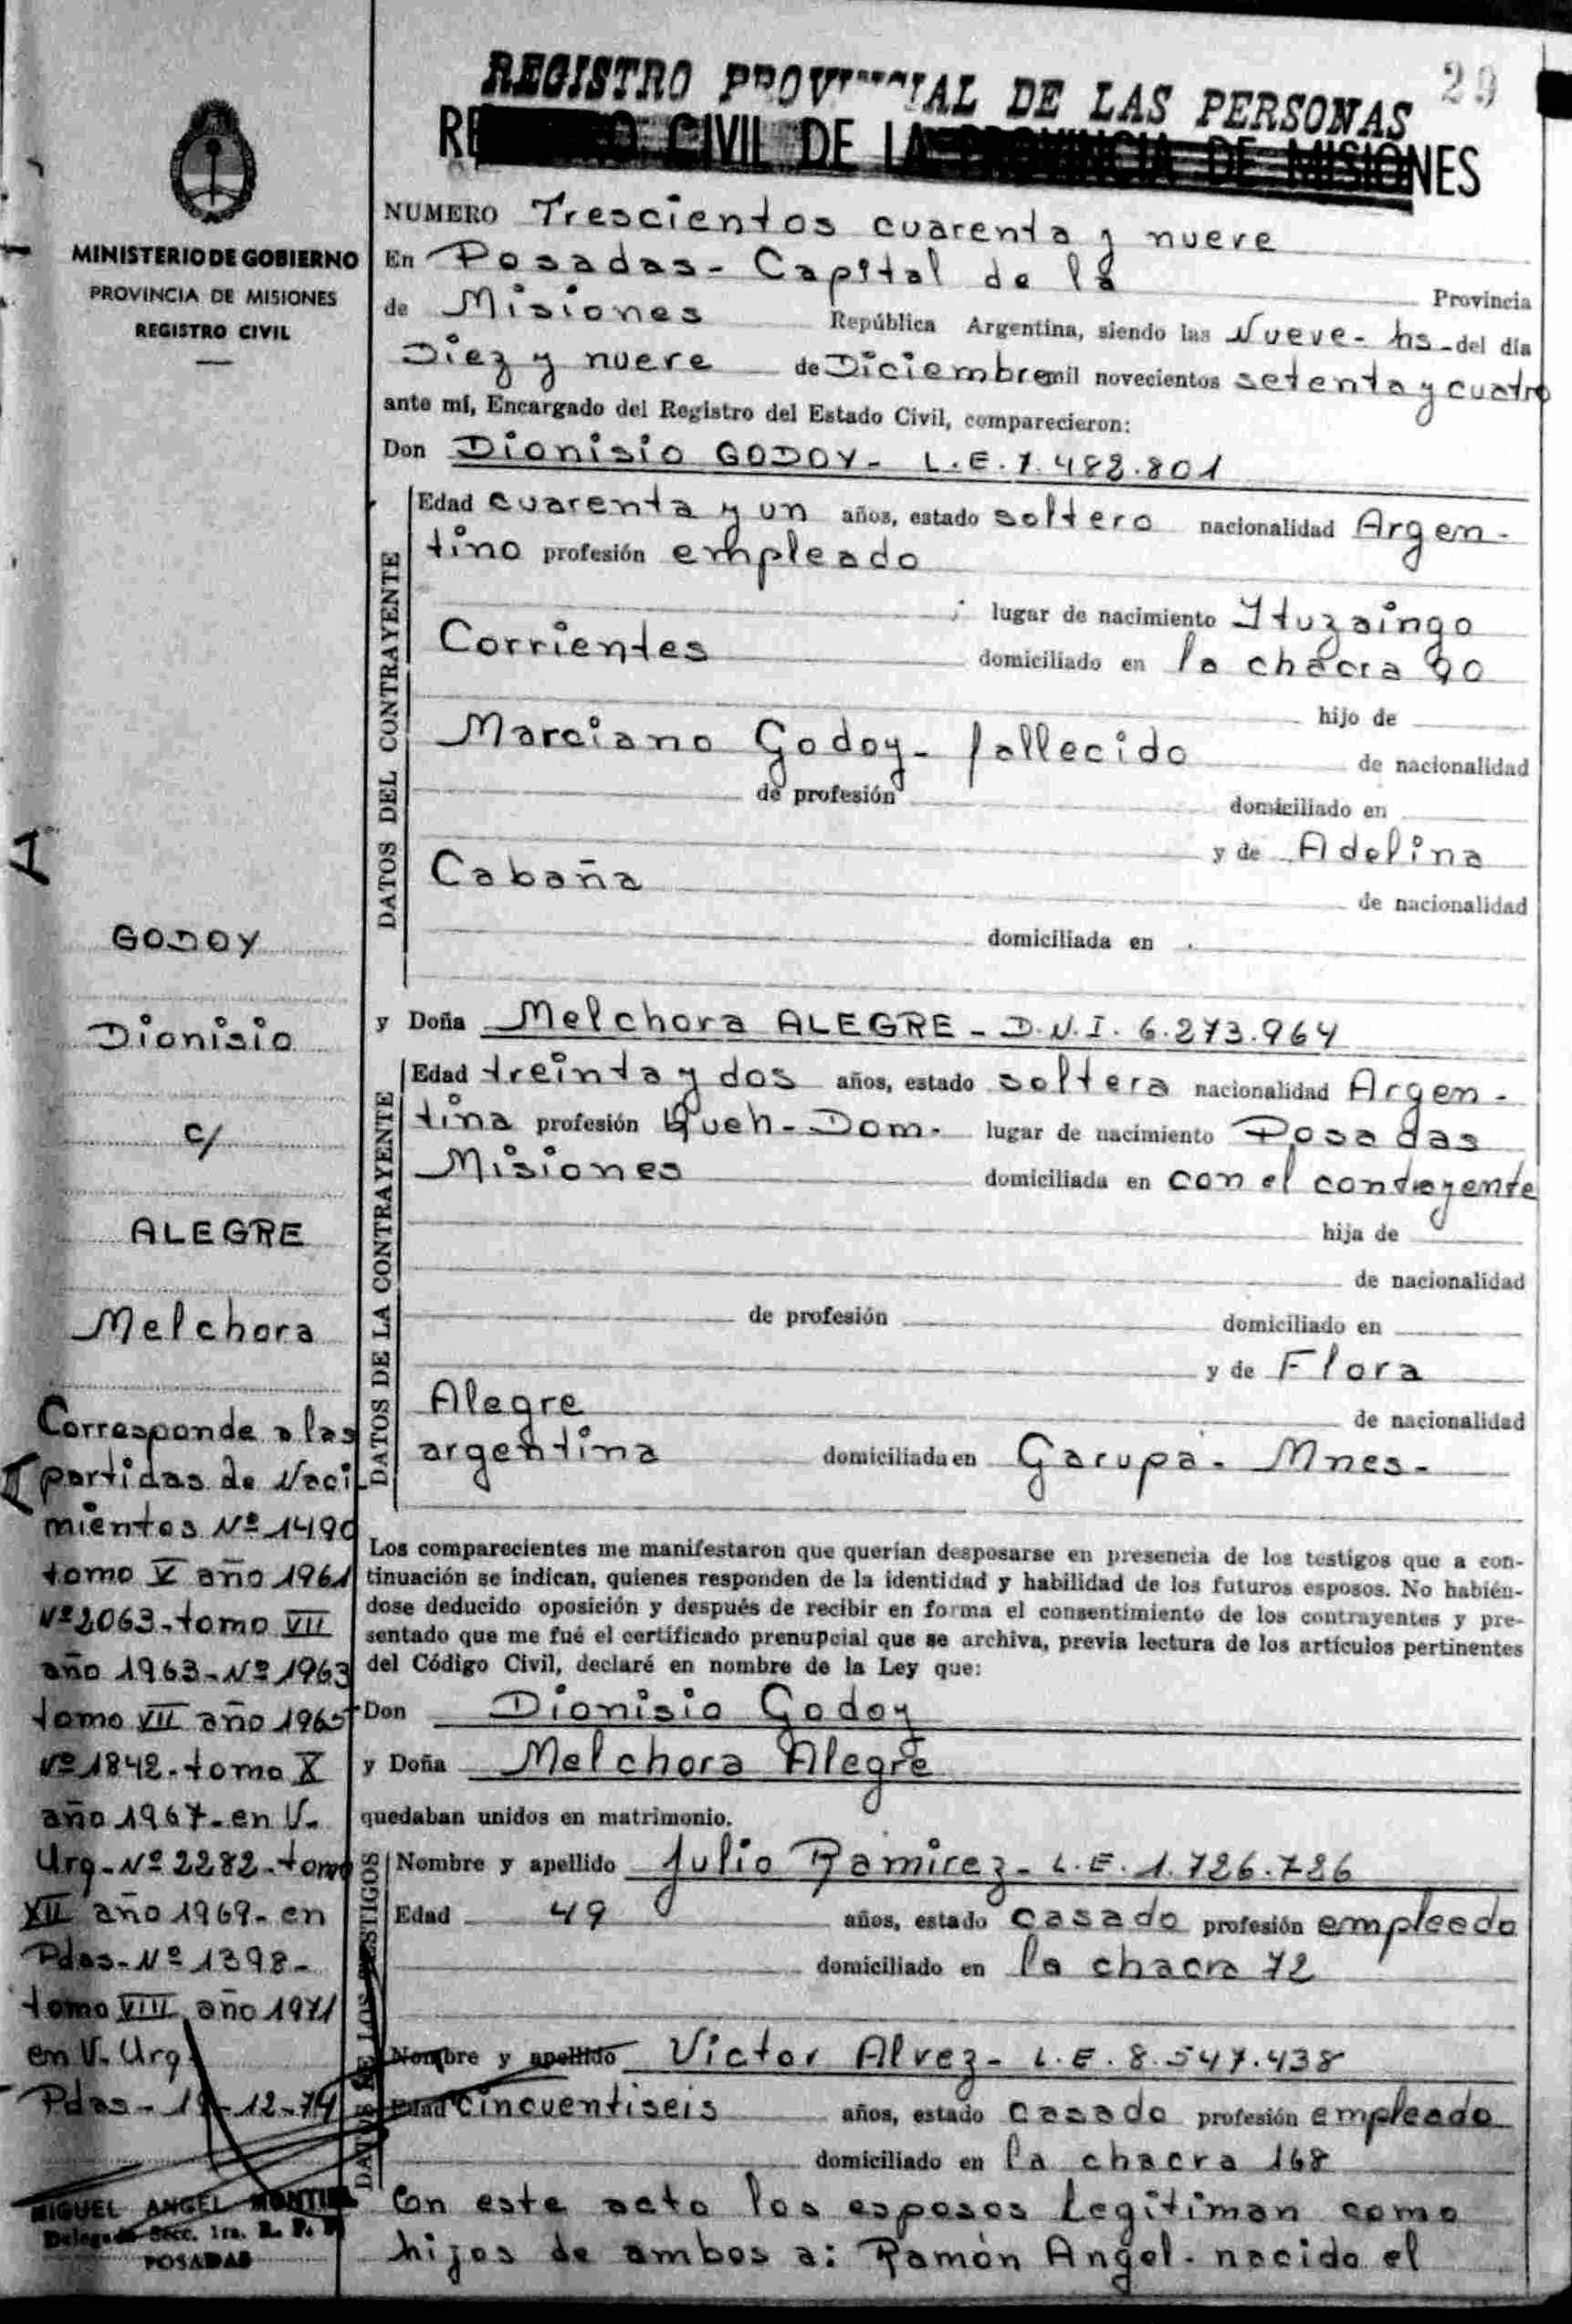 REGISTRO PROVINCIAL DE LAS PERSONAS
29
CIVIL DE LA PROVINCIA DE MISIONES
MINISTERIO DE GOBIERNO
PROVINCIA DE MISIONES
REGISTRO CIVIL
NUMERO Trescientos cuarenta y nueve
En Posadas - Capital de la Provincia
de Misiones República Argentina, siendo las Nueve - hs - del día
Diez y nueve de Diciembre mil novecientos setenta y cuatro
ante mí, Encargado del Registro del Estado Civil, comparecieron:
Don Dionisio GODOY - L.E. 7.482.801
DATOS DEL CONTRAYENTE
Edad cuarenta y un años, estado soltero nacionalidad Argen-
tino profesión empleado
lugar de nacimiento Ituzaingo
Corrientes domiciliado en la chacra 90
hijo de
Marciano Godoy - fallecido de nacionalidad
de profesión domiciliado en
y de Adelina
Cabaña de nacionalidad
domiciliada en
y Doña Melchora ALEGRE - D.N.I. 6.273.964
DATOS DE LA CONTRAYENTE
Edad treinta y dos años, estado soltera nacionalidad Argen-
tina profesión Queh - Dom. lugar de nacimiento Posadas
Misiones domiciliada en con el contrayente
hija de
de nacionalidad
de profesión domiciliado en
y de Flora
Alegre de nacionalidad
argentina domiciliada en Garupa - Mnes -
Los comparecientes me manifestaron que querían desposarse en presencia de los testigos que a con-
tinuación se indican, quienes responden de la identidad y habilidad de los futuros esposos. No habién-
dose deducido oposición y después de recibir en forma el consentimiento de los contrayentes y pre-
sentado que me fué el certificado prenupcial que se archiva, previa lectura de los artículos pertinentes
del Código Civil, declaré en nombre de la Ley que:
Don Dionisio Godoy
y Doña Melchora Alegre
quedaban unidos en matrimonio.
DATOS DE LOS TESTIGOS
Nombre y apellido Julio Ramirez - L.E. 1.726.726
Edad 49 años, estado casado profesión empleado
domiciliado en la chacra 72
Nombre y apellido Victor Alvez - L.E. 8.547.438
Edad cincuentiseis años, estado casado profesión empleado
domiciliado en la chacra 168
En este acto los esposos Legitiman como
hijos de ambos a: Ramón Angel - nacido el
GODOY
Dionisio
c/
ALEGRE
Melchora
Corresponde a las
partidas de Naci
mientos Nº 1490
tomo V año 1961
Nº 2063 - tomo VII
año 1963 - Nº 1963
tomo VII año 1965
Nº 1842 - tomo X
año 1967 - en V.
Urq - Nº 2282 - tomo
XII año 1969 - en
Pdas - Nº 1398 -
tomo VIII año 1971
en V. Urq.
Pdas - 19-12-74
MIGUEL ANGEL MONTIEL
Delegado Secc. 1ra. R. P. P.
POSADAS